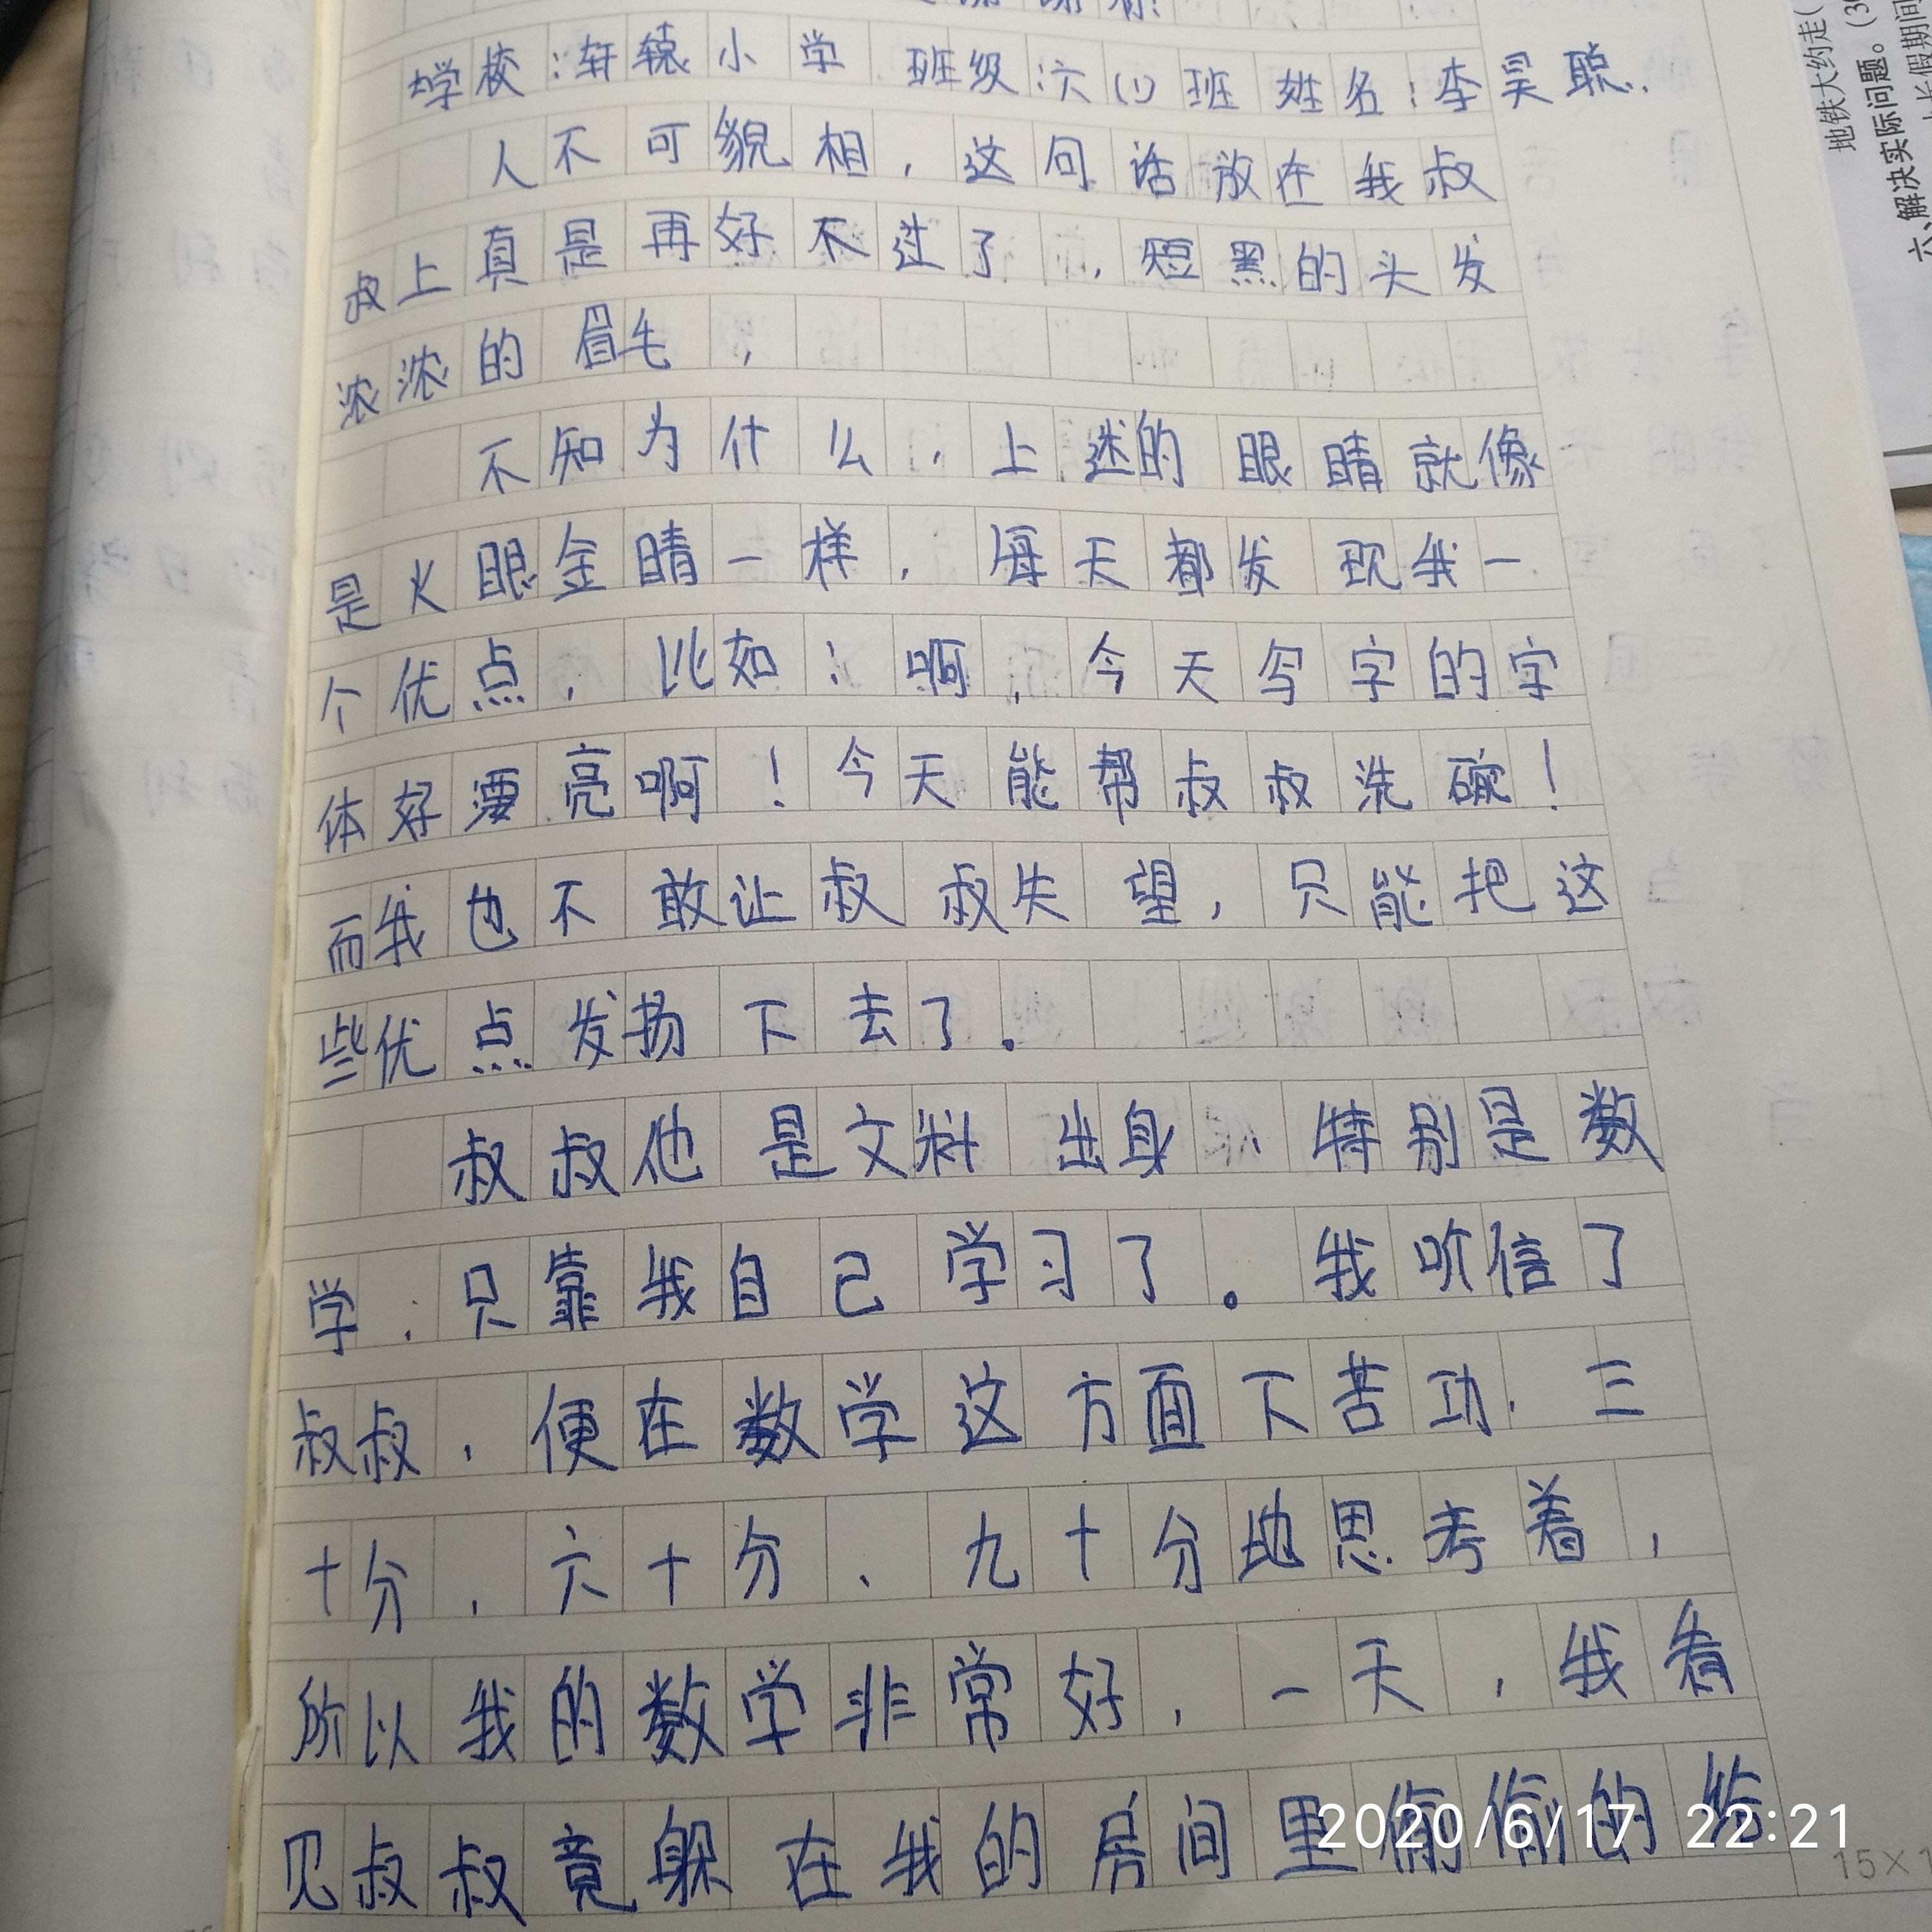 学校:轩辕小学 班级:六(1)班 姓名:李昊聪.
人不可貌相,这句话放在我叔
叔上真是再好不过了,短黑的头发
浓浓的眉毛,
不知为什么,上述的眼睛就像
是火眼金睛一样,每天都发现我一
个优点,比如:啊,今天写字的字
体好漂亮啊!今天能帮叔叔洗碗!
而我也不敢让叔叔失望,只能把这
些优点发扬下去了。
叔叔他是文科出身、特别是数
学,只靠我自己学习了。我听信了
叔叔,便在数学这方面下苦功,三
十分,六十分、九十分地思考着,
所以我的数学非常好,一天,我看
见叔叔竟躲在我的房间里偷偷的给
2020/6/17 22:21
地铁大约走(
六、解决实际问题。(30
长假期间